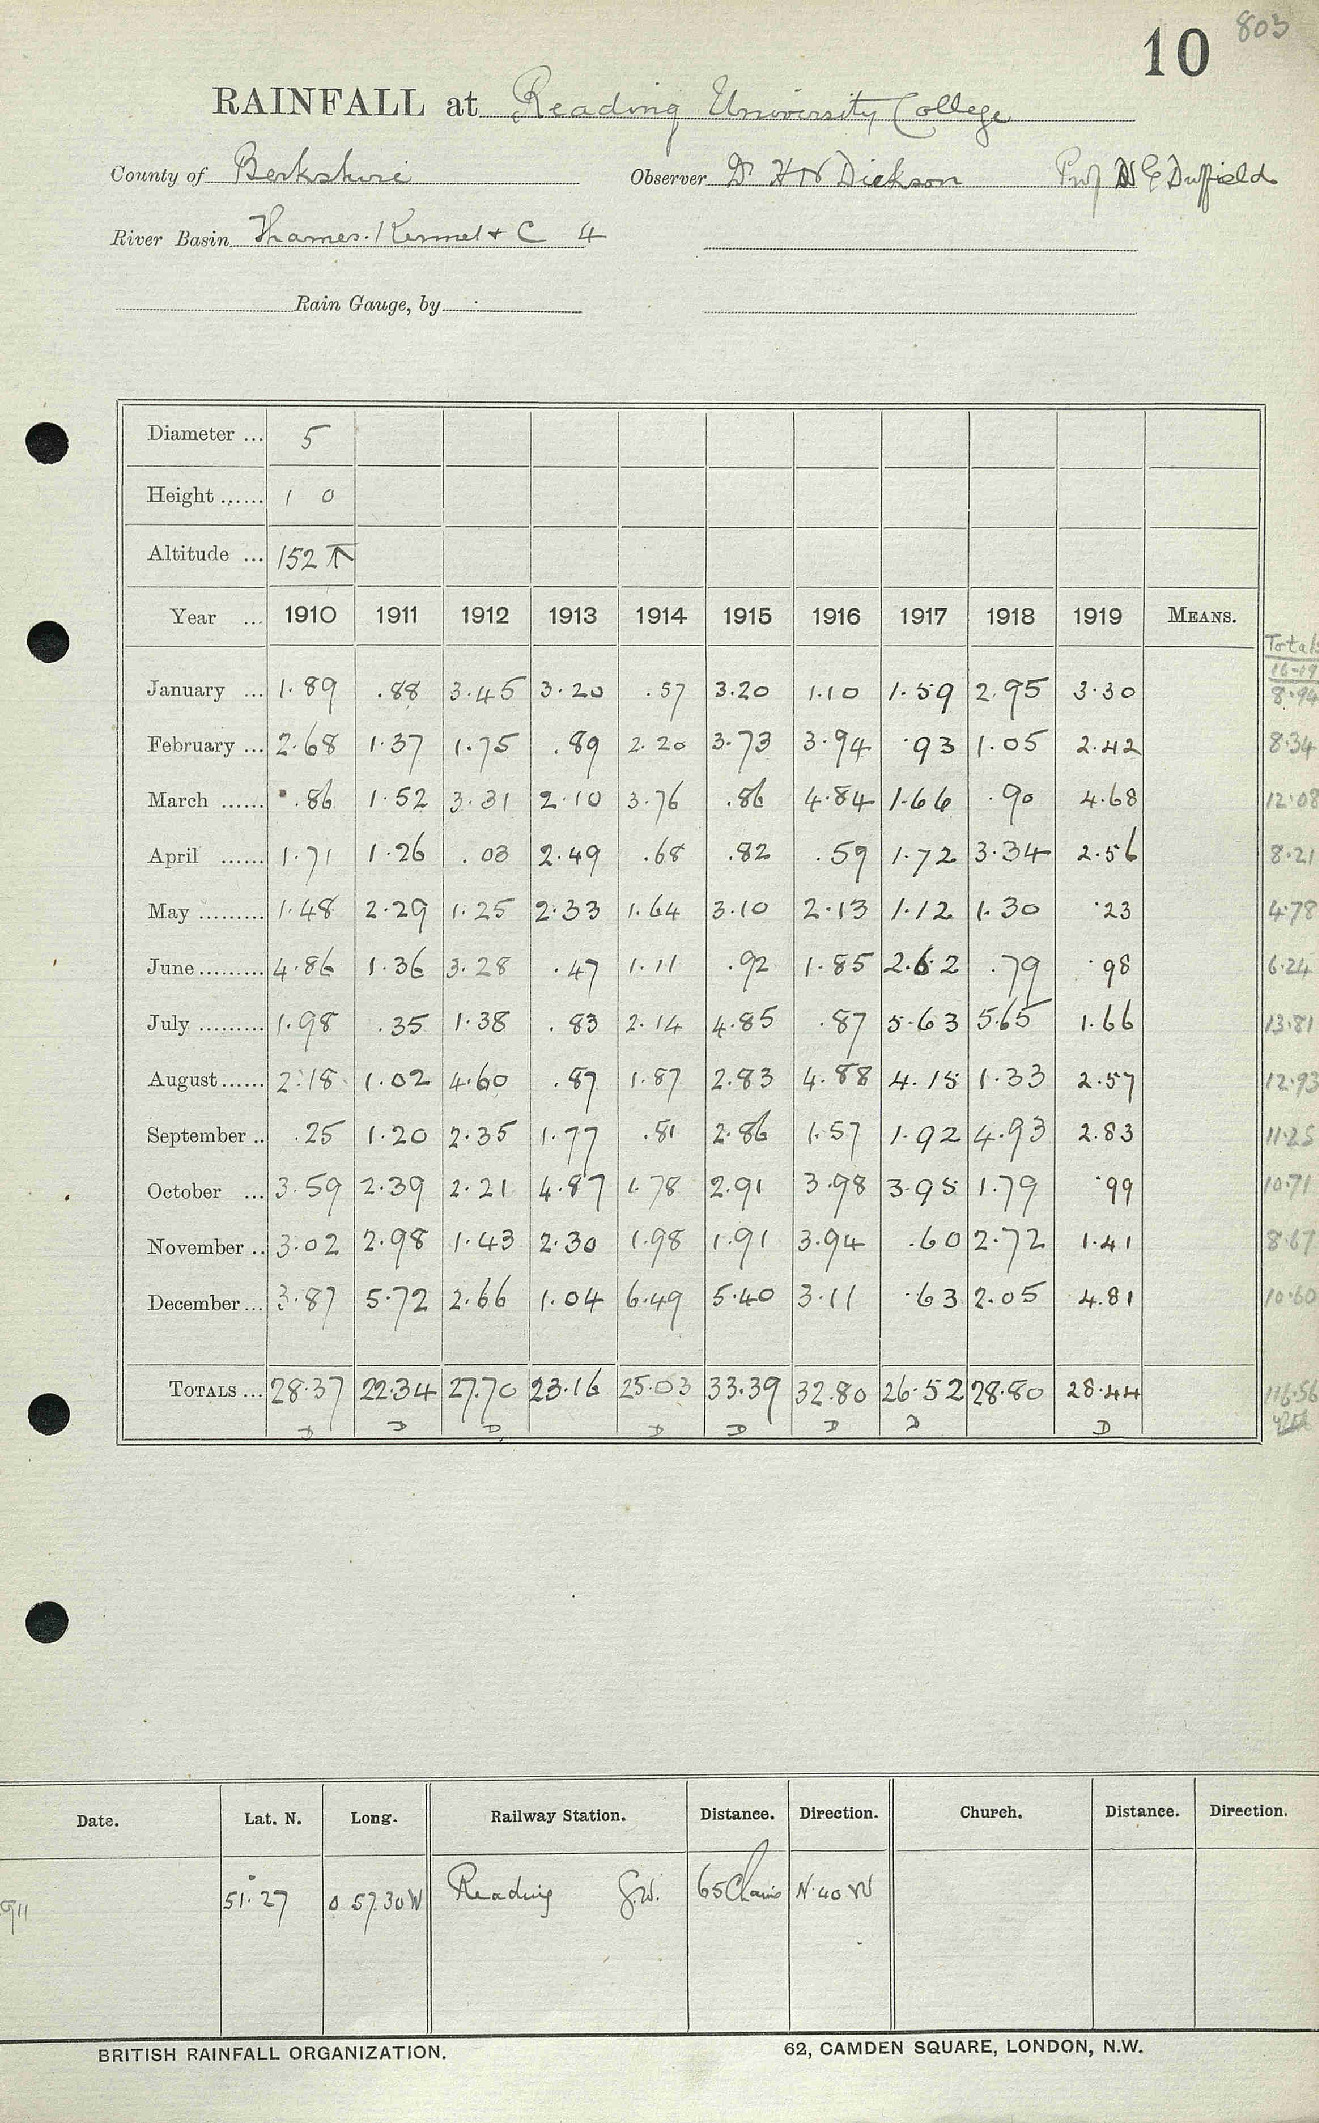 10 803
RAINFALL at Reading University College
County of Berkshire Observer Dr H N Dickson Prof W G Duffield
River Basin Thames. Kennet + C 4
Rain Gauge, by
Diameter ... 5
Height ...... 1 0
Altitude ... 152
Year ... 1910 1911 1912 1913 1914 1915 1916 1917 1918 1919 MEANS.
Totals
16-19
January ... 1.89 .88 3.45 3.20 .57 3.20 1.10 1.59 2.95 3.30 8.94
February ... 2.68 1.37 1.75 .89 2.20 3.73 3.94 .93 1.05 2.42 8.34
March ...... .86 1.52 3.31 2.10 3.76 .86 4.84 1.66 .90 4.68 12.08
April ...... 1.71 1.26 .03 2.49 .68 .82 .59 1.72 3.34 2.56 8.21
May ......... 1.48 2.29 1.25 2.33 1.64 3.10 2.13 1.12 1.30 .23 4.78
June ......... 4.86 1.36 3.28 .47 1.11 .92 1.85 2.62 .79 .98 6.24
July ......... 1.98 .35 1.38 .83 2.14 4.85 .87 5.63 5.65 1.66 13.81
August ...... 2.18 1.02 4.60 .87 1.87 2.83 4.88 4.15 1.33 2.57 12.93
September .. .25 1.20 2.35 1.77 .81 2.86 1.57 1.92 4.93 2.83 11.25
October ... 3.59 2.39 2.21 4.87 1.78 2.91 3.98 3.95 1.79 .99 10.71
November .. 3.02 2.98 1.43 2.30 1.98 1.91 3.94 .60 2.72 1.41 8.67
December ... 3.87 5.72 2.66 1.04 6.49 5.40 3.11 .63 2.05 4.81 10.60
TOTALS ... 28.37 22.34 27.70 23.16 25.03 33.39 32.80 26.52 28.80 28.44 116.56
D D D D D D D D
Date. Lat. N. Long. Railway Station. Distance. Direction. Church. Distance. Direction.
911 51.27 0 57.30 W Reading G.W. 65 Chains N 40 W
BRITISH RAINFALL ORGANIZATION. 62, CAMDEN SQUARE, LONDON, N.W.